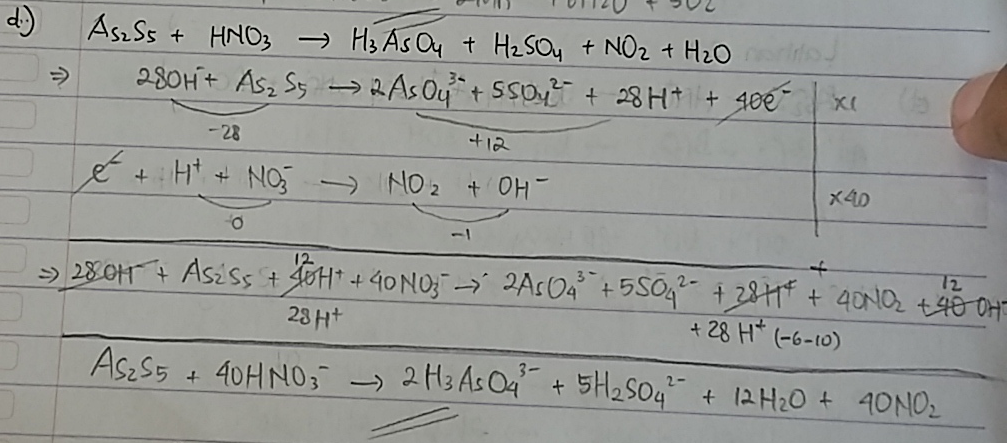 d.) As2S5 + HNO3 → H3AsO4 + H2SO4 + NO2 + H2O
⇒ 28OH⁻ + As2S5 → 2AsO4³⁻ + 5SO4²⁻ + 28H⁺ + 40e⁻ | x1
-28 +12
e⁻ + H⁺ + NO3⁻ → NO2 + OH⁻ | x40
0 -1
⇒ 28OH⁻ + As2S5 + 40H⁺ + 40NO3⁻ → 2AsO4³⁻ + 5SO4²⁻ + 28H⁺ + 40NO2 + 40 OH⁻
12 + 12
28H⁺ + 28H⁺ (-6-10)
As2S5 + 40HNO3⁻ → 2H3AsO4³⁻ + 5H2SO4²⁻ + 12H2O + 40NO2